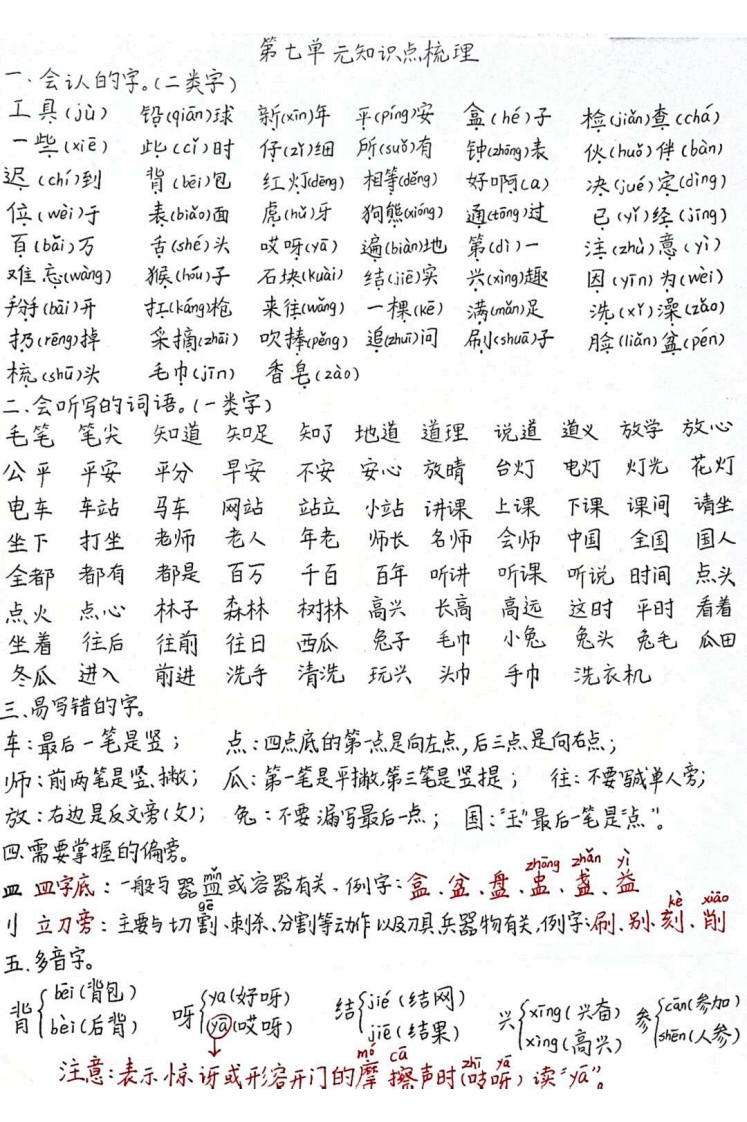 第七单元知识点梳理
一、会认的字。(二类字)
工具(jù) 铅(qiān)球 新(xīn)年 平(píng)安 盒(hé)子 检(jiǎn)查(chá)
一些(xiē) 此(cǐ)时 仔(zǐ)细 所(suǒ)有 钟(zhōng)表 伙(huǒ)伴(bàn)
迟(chí)到 背(bēi)包 红灯(dēng) 相等(děng) 好啊(a) 决(jué)定(dìng)
位(wèi)于 表(biǎo)面 虎(hǔ)牙 狗熊(xióng) 通(tōng)过 已(yǐ)经(jīng)
百(bǎi)万 舌(shé)头 哎呀(yā) 遍(biàn)地 第(dì)一 注(zhù)意(yì)
难忘(wàng) 猴(hóu)子 石块(kuài) 结(jiē)实 兴(xìng)趣 因(yīn)为(wèi)
掰(bāi)开 扛(káng)枪 来往(wǎng) 一棵(kē) 满(mǎn)足 洗(xǐ)澡(zǎo)
扔(rēng)掉 采摘(zhāi) 吹捧(pěng) 追(zhuī)问 刷(shuā)子 脸(liǎn)盆(pén)
梳(shū)头 毛巾(jīn) 香皂(zào)
二、会听写的词语。(一类字)
毛笔 笔尖 知道 知足 知了 地道 道理 说道 道义 放学 放心
公平 平安 平分 早安 不安 安心 放晴 台灯 电灯 灯光 花灯
电车 车站 马车 网站 站立 小站 讲课 上课 下课 课间 请坐
坐下 打坐 老师 老人 年老 师长 名师 会师 中国 全国 国人
全都 都有 都是 百万 千百 百年 听讲 听课 听说 时间 点头
点火 点心 林子 森林 树林 高兴 长高 高远 这时 平时 看着
坐着 往后 往前 往日 西瓜 兔子 毛巾 小兔 兔头 兔毛 瓜田
冬瓜 进入 前进 洗手 清洗 玩兴 头巾 手巾 洗衣机
三、易写错的字。
车:最后一笔是竖; 点:四点底的第一点是向左点,后三点是向右点;
师:前两笔是竖、撇; 瓜:第一笔是平撇,第三笔是竖提; 往:不要写成单人旁;
放:右边是反文旁(攵); 兔:不要漏写最后一点; 国:“玉”最后一笔是“点”。
四、需要掌握的偏旁。
皿 皿字底:一般与器皿(mǐn)或容器有关、例字:盒、盆、盘、盅(zhōng)、盏(zhǎn)、益(yì)
刂 立刀旁:主要与切割(gē)、刺杀、分割等动作以及刀具兵器物有关,例字:刷、别、刻(kè)、削(xiāo)
五、多音字。
背{bēi(背包) bèi(后背) 呀{ya(好呀) yā(哎呀) 结{jié(结网) jiē(结果) 兴{xīng(兴奋) xìng(高兴) 参{cān(参加) shēn(人参)
注意:表示惊讶或形容开门的摩(mó)擦(cā)声时(吱(zhī)呀(yā))读“yā”。